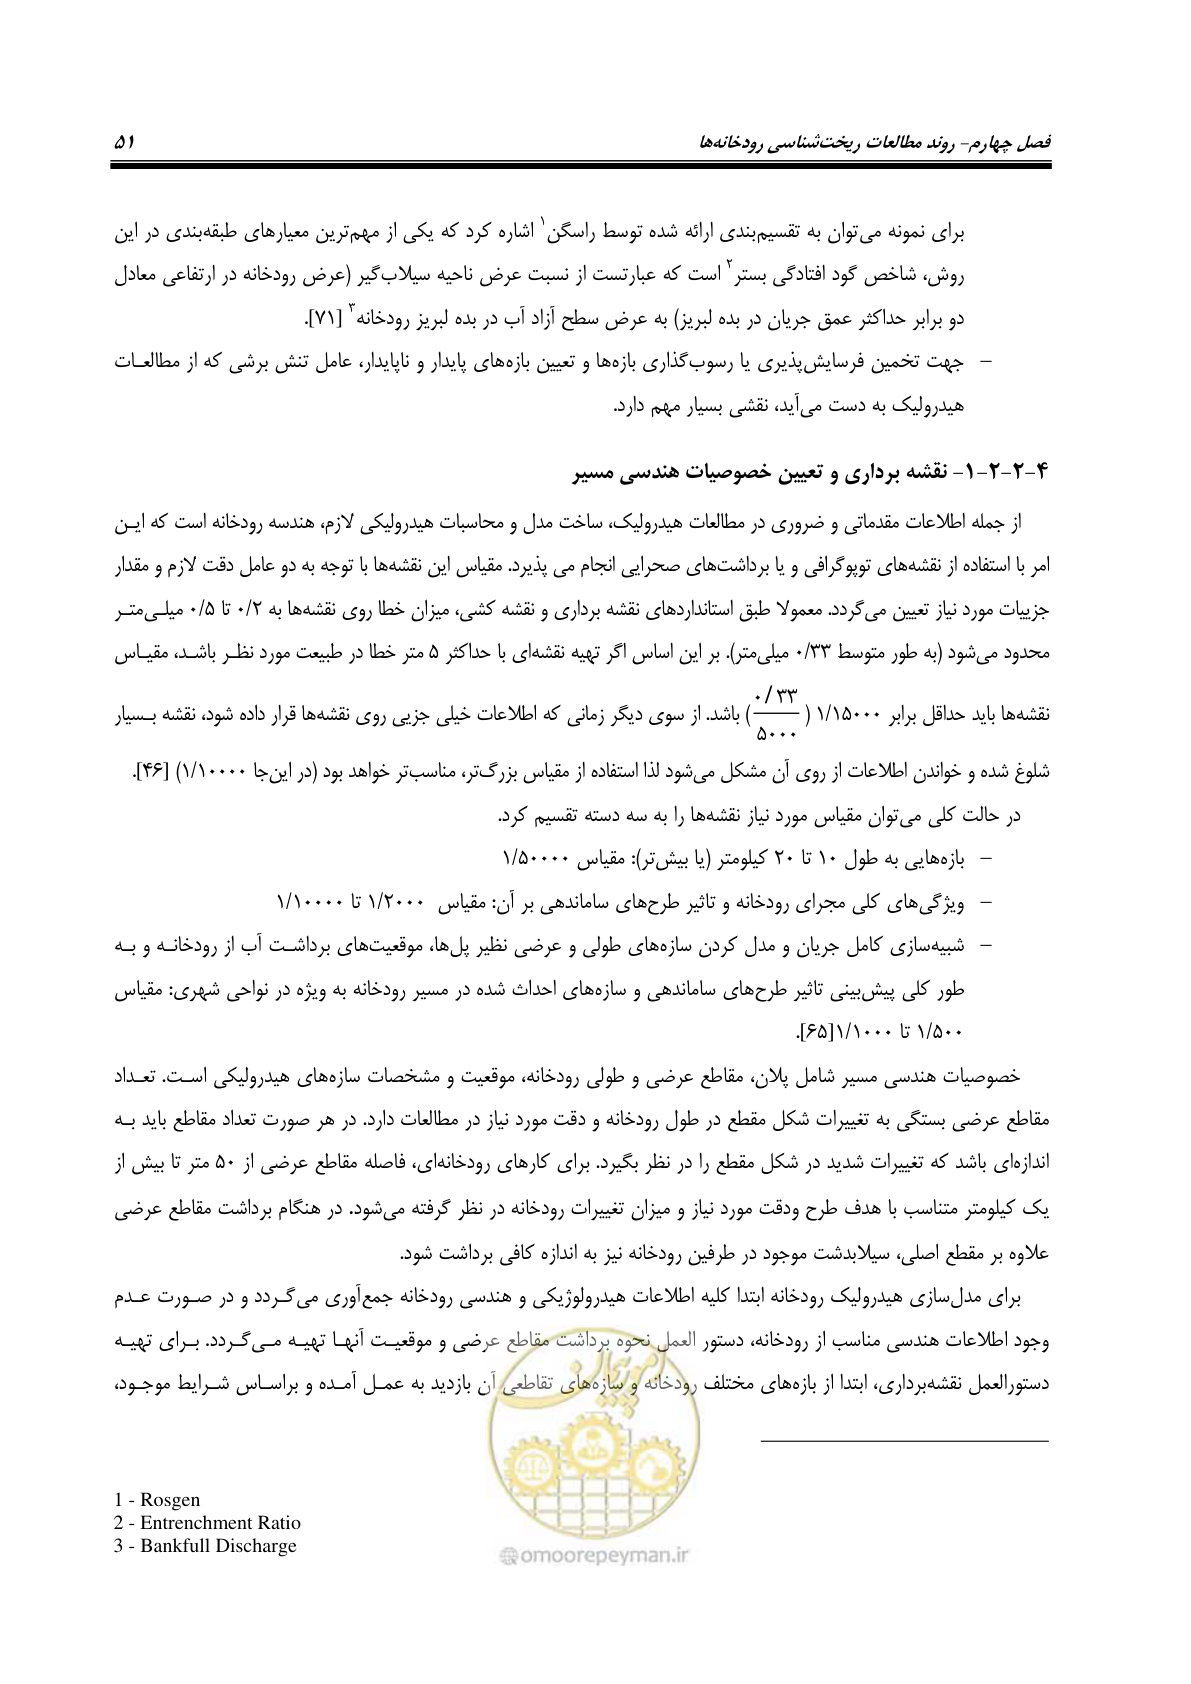 فصل چهارم- روند مطالعات ریخت‌شناسی رودخانه‌ها ۵۱
برای نمونه می‌توان به تقسیم‌بندی ارائه شده توسط راسگن۱ اشاره کرد که یکی از مهم‌ترین معیارهای طبقه‌بندی در این
روش، شاخص گود افتادگی بستر۲ است که عبارتست از نسبت عرض ناحیه سیلاب‌گیر (عرض رودخانه در ارتفاعی معادل
دو برابر حداکثر عمق جریان در بده لبریز) به عرض سطح آزاد آب در بده لبریز رودخانه۳ [۷۱].
– جهت تخمین فرسایش‌پذیری یا رسوب‌گذاری بازه‌ها و تعیین بازه‌های پایدار و ناپایدار، عامل تنش برشی که از مطالعات
هیدرولیک به دست می‌آید، نقشی بسیار مهم دارد.
۴-۲-۲-۱- نقشه برداری و تعیین خصوصیات هندسی مسیر
از جمله اطلاعات مقدماتی و ضروری در مطالعات هیدرولیک، ساخت مدل و محاسبات هیدرولیکی لازم، هندسه رودخانه است که این
امر با استفاده از نقشه‌های توپوگرافی و یا برداشت‌های صحرایی انجام می پذیرد. مقیاس این نقشه‌ها با توجه به دو عامل دقت لازم و مقدار
جزییات مورد نیاز تعیین می‌گردد. معمولا طبق استانداردهای نقشه برداری و نقشه کشی، میزان خطا روی نقشه‌ها به ۰/۲ تا ۰/۵ میلی‌متر
محدود می‌شود (به طور متوسط ۰/۳۳ میلی‌متر). بر این اساس اگر تهیه نقشه‌ای با حداکثر ۵ متر خطا در طبیعت مورد نظر باشد، مقیاس
نقشه‌ها باید حداقل برابر ۱/۱۵۰۰۰ (۰/۳۳ / ۵۰۰۰) باشد. از سوی دیگر زمانی که اطلاعات خیلی جزیی روی نقشه‌ها قرار داده شود، نقشه بسیار
شلوغ شده و خواندن اطلاعات از روی آن مشکل می‌شود لذا استفاده از مقیاس بزرگ‌تر، مناسب‌تر خواهد بود (در این‌جا ۱/۱۰۰۰۰) [۴۶].
در حالت کلی می‌توان مقیاس مورد نیاز نقشه‌ها را به سه دسته تقسیم کرد.
– بازه‌هایی به طول ۱۰ تا ۲۰ کیلومتر (یا بیش‌تر): مقیاس ۱/۵۰۰۰۰
– ویژگی‌های کلی مجرای رودخانه و تاثیر طرح‌های ساماندهی بر آن: مقیاس ۱/۲۰۰۰ تا ۱/۱۰۰۰۰
– شبیه‌سازی کامل جریان و مدل کردن سازه‌های طولی و عرضی نظیر پل‌ها، موقعیت‌های برداشت آب از رودخانه و به
طور کلی پیش‌بینی تاثیر طرح‌های ساماندهی و سازه‌های احداث شده در مسیر رودخانه به ویژه در نواحی شهری: مقیاس
۱/۵۰۰ تا ۱/۱۰۰۰[۶۵].
خصوصیات هندسی مسیر شامل پلان، مقاطع عرضی و طولی رودخانه، موقعیت و مشخصات سازه‌های هیدرولیکی است. تعداد
مقاطع عرضی بستگی به تغییرات شکل مقطع در طول رودخانه و دقت مورد نیاز در مطالعات دارد. در هر صورت تعداد مقاطع باید به
اندازه‌ای باشد که تغییرات شدید در شکل مقطع را در نظر بگیرد. برای کارهای رودخانه‌ای، فاصله مقاطع عرضی از ۵۰ متر تا بیش از
یک کیلومتر متناسب با هدف طرح ودقت مورد نیاز و میزان تغییرات رودخانه در نظر گرفته می‌شود. در هنگام برداشت مقاطع عرضی
علاوه بر مقطع اصلی، سیلابدشت موجود در طرفین رودخانه نیز به اندازه کافی برداشت شود.
برای مدل‌سازی هیدرولیک رودخانه ابتدا کلیه اطلاعات هیدرولوژیکی و هندسی رودخانه جمع‌آوری می‌گردد و در صورت عدم
وجود اطلاعات هندسی مناسب از رودخانه، دستور العمل نحوه برداشت مقاطع عرضی و موقعیت آنها تهیه می‌گردد. برای تهیه
دستورالعمل نقشه‌برداری، ابتدا از بازه‌های مختلف رودخانه و سازه‌های تقاطعی آن بازدید به عمل آمده و براساس شرایط موجود،
امورپیمان
1 - Rosgen
2 - Entrenchment Ratio
3 - Bankfull Discharge
omoorepeyman.ir